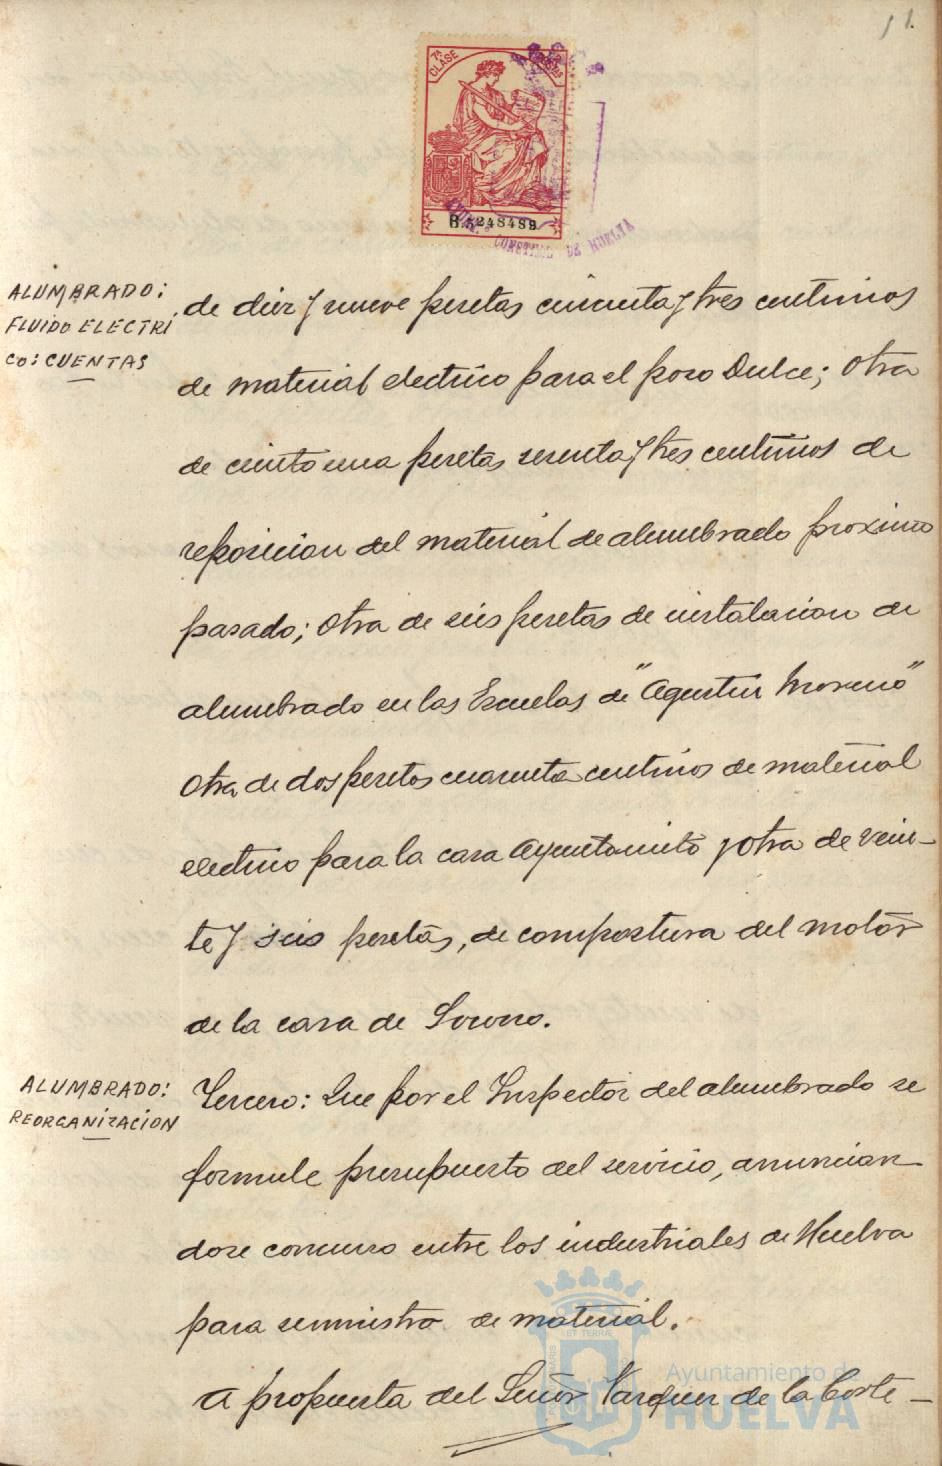 11.
7ª CLASE
B.5248489
CONSTNAL DE HUELVA
ALUMBRADO:
FLUIDO ELECTRI
CO: CUENTAS
de diez y nueve pesetas cincuenta y tres centimos
de material electrico para el pozo Dulce; otra
de ciento una pesetas sesenta y tres centimos de
reposicion del material de alumbrado proximo
pasado; otra de seis pesetas de instalacion de
alumbrado en las Escuelas de "Agustin Moreno"
otra de dos pesetas cuarenta centimos de material
electrico para la casa Ayuntamito y otra de vein-
te y seis pesetas, de compostura del motor
de la casa de Socorro.
ALUMBRADO:
REORGANIZACION
Tercero: Que por el Inspector del alumbrado se
formule presupuesto del servicio, anuncian
dose concurso entre los industriales de Huelva
para suministro de material.
A propuesta del Señor Vazquez de la Corte-
Ayuntamiento de
HUELVA